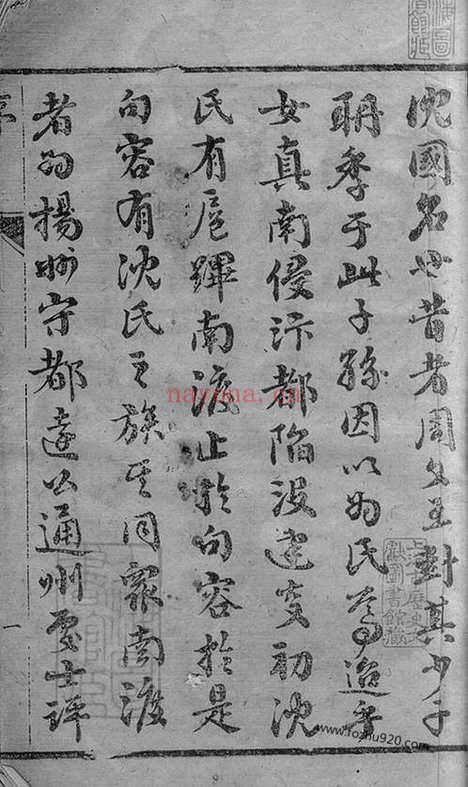 沈國名也昔者周文王封其少子
聃季于此子孫因以为氏
女真南侵汴都陷没建炎初沈
氏有扈蹕南渡止於句容於是
句容有沈氏之族其同宗南渡
者为揚州守都遠公通州處士
序
一
nayona.cn
www.fozhu920.com